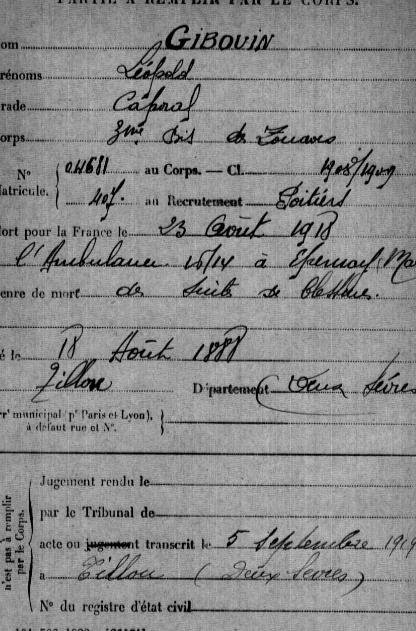 PARTIE À REMPLIR PAR LE CORPS.
om GIBOUIN
rénoms Léopold
rade Caporal
orps 3me Bis de Zouaves
N° 04611 au Corps. — Cl. 1908/1909
atricule. 407. au Recrutement Poitiers
ort pour la France le 23 Août 1918
l'Ambulance 10/14 à Epernay, Ma
enre de mort de suite de blessures.
é le 18 Août 1888
Tillou Département (Deux Sèvres
r' municipal (p' Paris et Lyon),
à défaut rue et N°.
Jugement rendu le
par le Tribunal de
acte ou jugement transcrit le 5 Septembre 1919
à Tillou (Deux Sèvres)
N° du registre d'état civil
n'est pas à remplir
par le Corps.